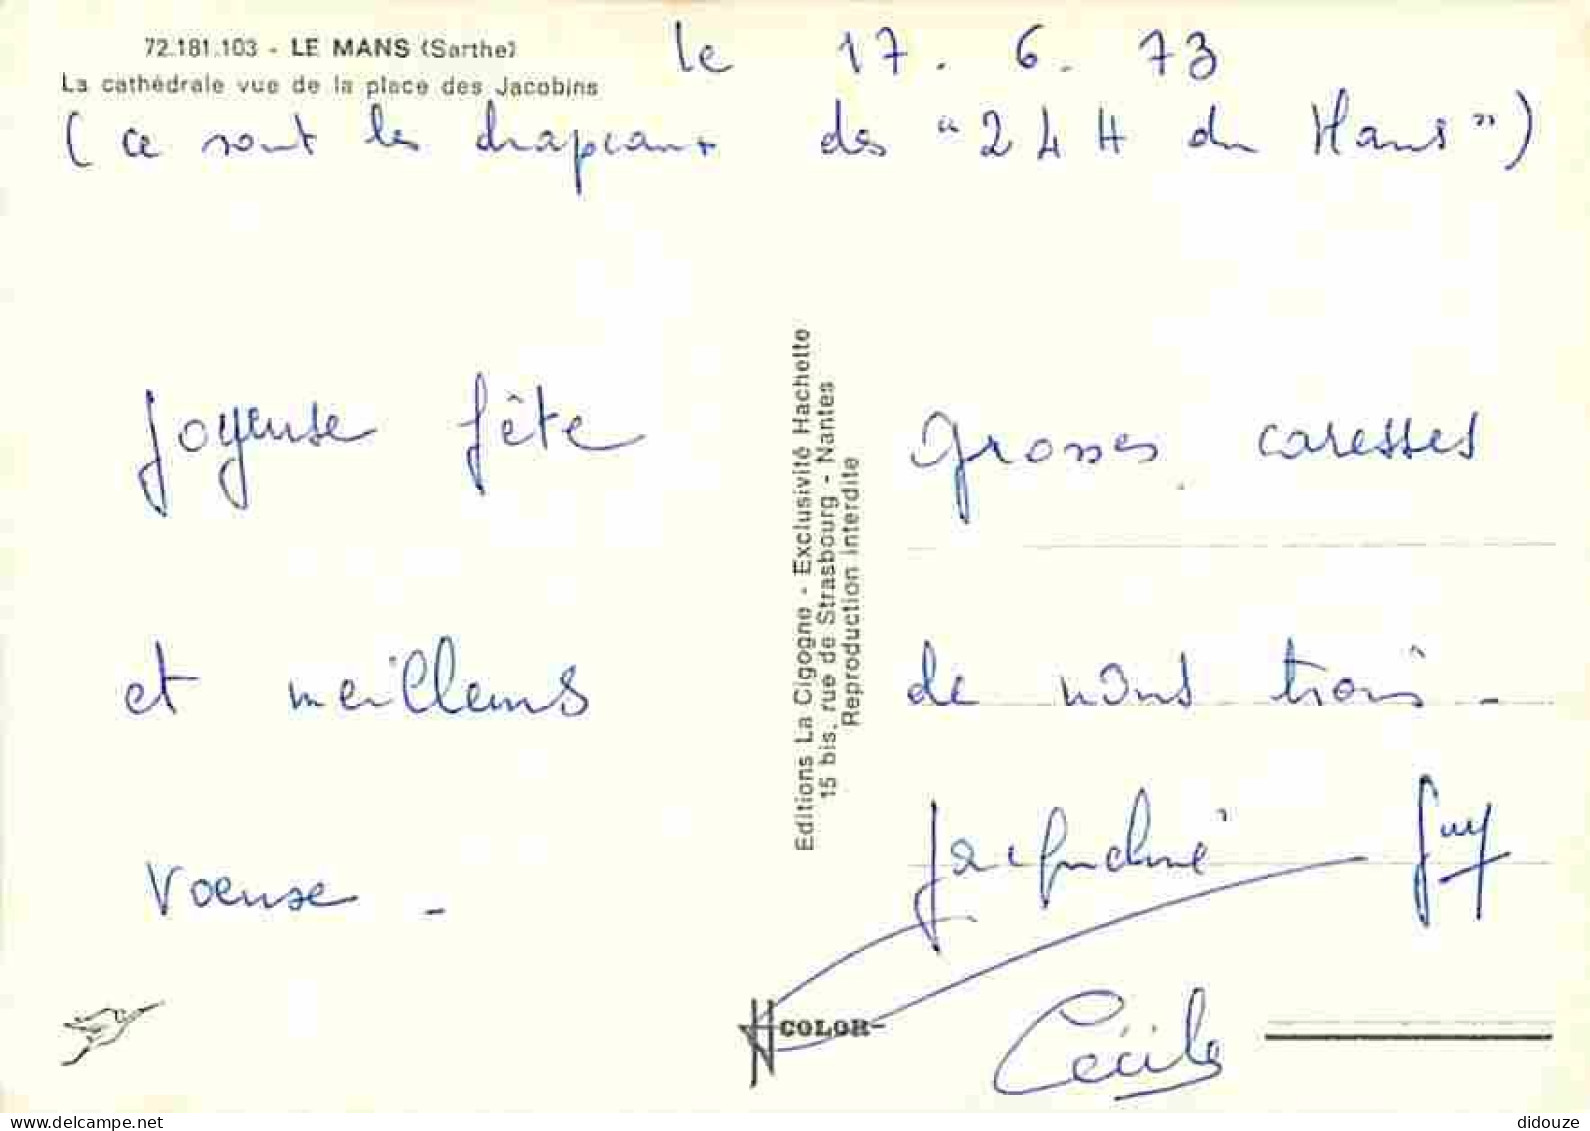 72.181.103 - LE MANS (Sarthe)
La cathédrale vue de la place des Jacobins
le 17.6.73
(ce sont les drapeaux des "24 H du Mans")
Joyeuse fête
et meilleurs
voeux -
grosses caresses
de nous trois -
Jacqueline Guy
Cécile
Editions La Cigogne - Exclusivité Hachette
15 bis, rue de Strasbourg - Nantes
Reproduction interdite
COLOR
www.delcampe.net
didouze